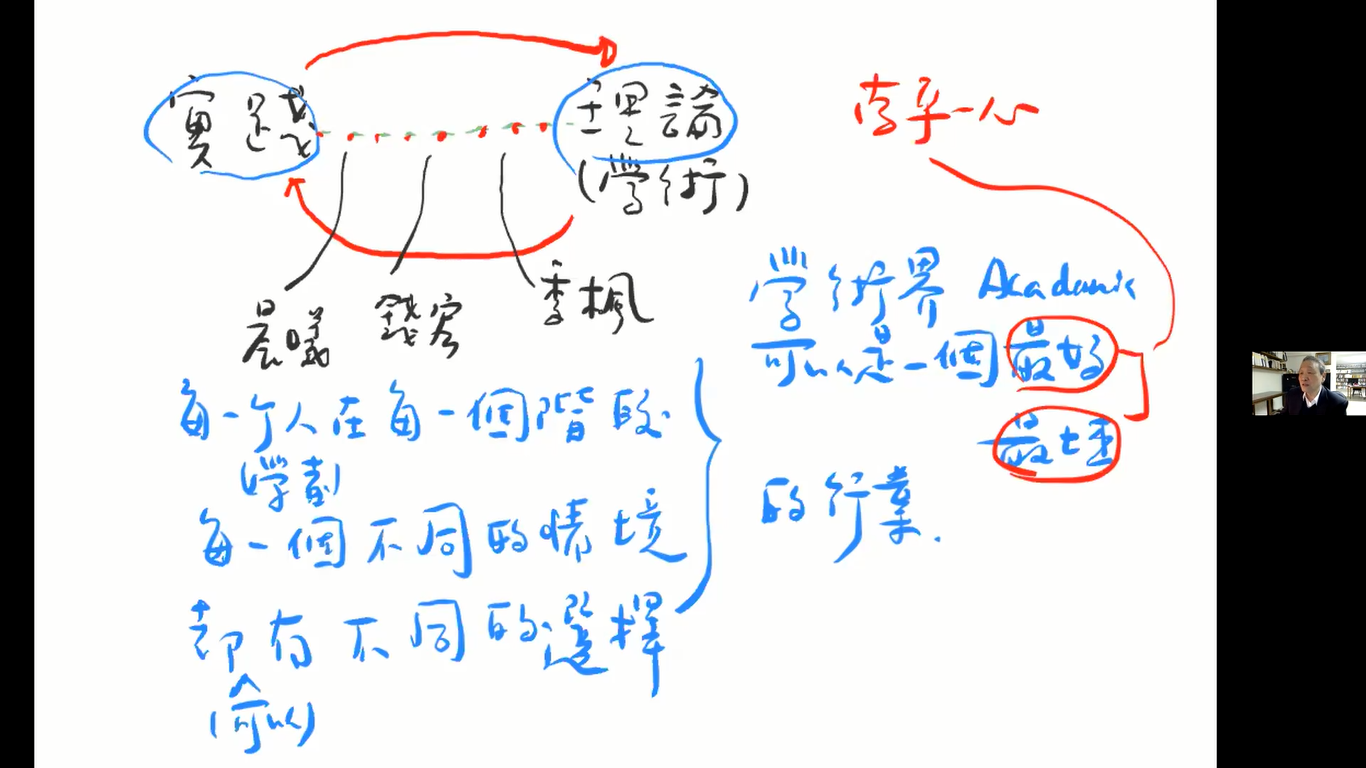 實踐 理論
(學術)
存乎一心
晨曦 錢客 季楓
學術界 Academic
可以是一個最好
最壞
的行業.
每一个人在每一個階段
(學者)
每一個不同的情境
都有不同的選擇
(可以)